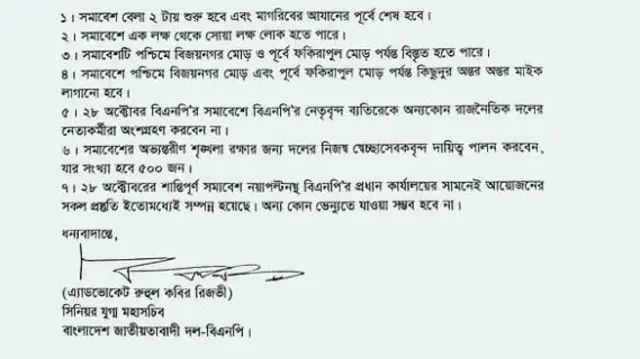 ১। সমাবেশ বেলা ২ টায় শুরু হবে এবং মাগরিবের আযানের পূর্বে শেষ হবে।
২। সমাবেশে এক লক্ষ থেকে সোয়া লক্ষ লোক হতে পারে।
৩। সমাবেশটি পশ্চিমে বিজয়নগর মোড় ও পূর্বে ফকিরাপুল মোড় পর্যন্ত বিস্তৃত হতে পারে।
৪। সমাবেশে পশ্চিমে বিজয়নগর মোড় এবং পূর্বে ফকিরাপুল মোড় পর্যন্ত কিছুদূর অন্তর অন্তর মাইক
লাগানো হবে।
৫। ২৮ অক্টোবর বিএনপি'র সমাবেশে বিএনপি'র নেতৃবৃন্দ ব্যতিরেকে অন্যকোন রাজনৈতিক দলের
নেতাকর্মীরা অংশগ্রহণ করবেন না।
৬। সমাবেশের অভ্যন্তরীণ শৃঙ্খলা রক্ষার জন্য দলের নিজস্ব স্বেচ্ছাসেবকবৃন্দ দায়িত্ব পালন করবেন,
যার সংখ্যা হবে ৫০০ জন।
৭। ২৮ অক্টোবরের শান্তিপূর্ণ সমাবেশ নয়াপল্টনস্থ বিএনপি'র প্রধান কার্যালয়ের সামনেই আয়োজনের
সকল প্রস্তুতি ইতোমধ্যেই সম্পন্ন হয়েছে। অন্য কোন ভেন্যুতে যাওয়া সম্ভব হবে না।
ধন্যবাদান্তে,
(এ্যাডভোকেট রুহুল কবির রিজভী)
সিনিয়র যুগ্ম মহাসচিব
বাংলাদেশ জাতীয়তাবাদী দল-বিএনপি।